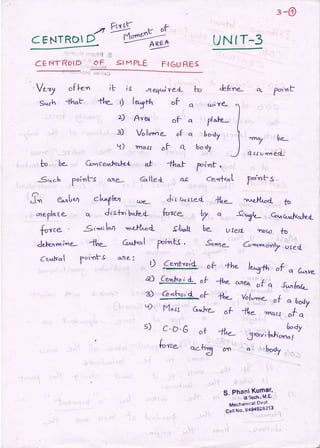 3-①
CENTROID First Moment of AREA UNIT-3
CENTROID OF SIMPLE FIGURES
Very often it is required to define a point
such that the 1) length of a wire
2) Area of a plate
3) Volume of a body
4) mass of a body
may be assumed
to be Concentrated at that point.
Such points are Called as Central points.
In earlier chapter we discussed the method to
replace a distributed force by a Single Concentrated
force. Similar method shall be used now to
determine the Central points. Some Commonly used
Central points are:
1) Centroid of the length of a Curve
2) Centroid of the area of a Surface
3) Centroid of the Volume of a body
4) Mass Centre of the mass of a body
5) C.O.G of the gravitational
force acting on a body
S. Phani Kumar,
B.Tech, M.E.
Mechanical Dept.
Cell No. 9494524313